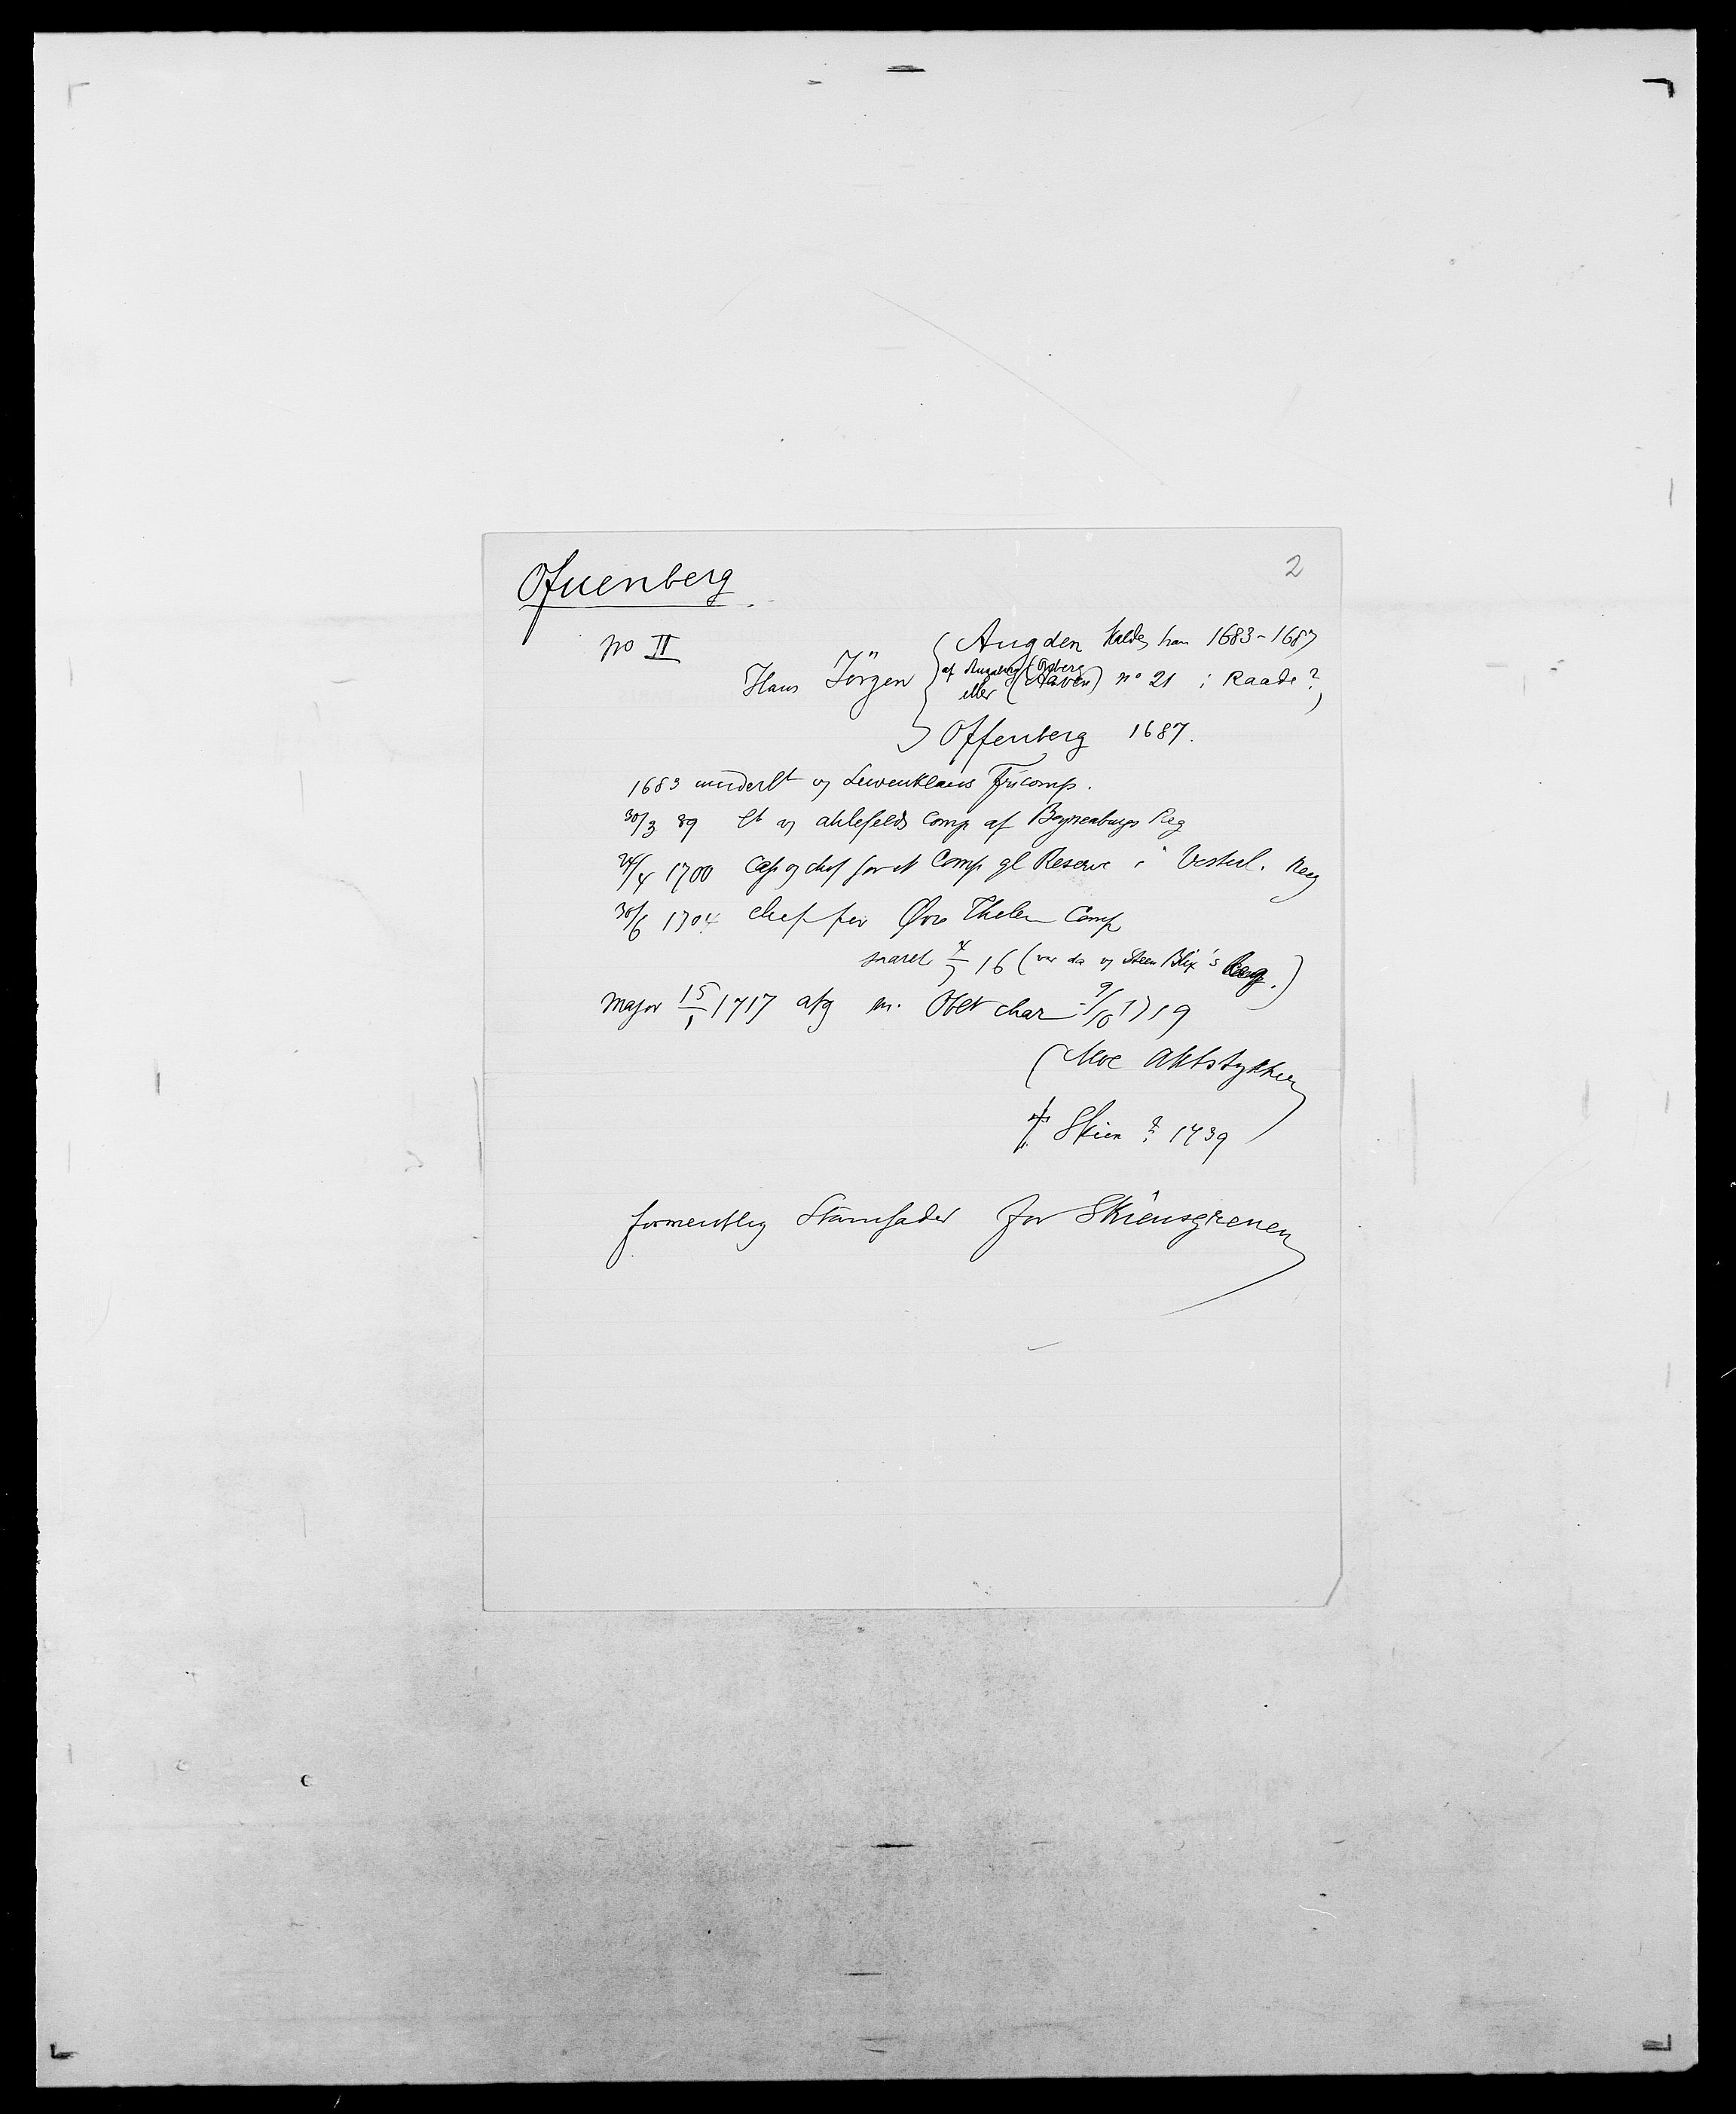 Ofuenberg
2
no II
Augden kaldes han 1683-1687
Hans Jörgen
af Augaberg (Opberg
eller (Haven) no 21 i Raade?)
Offenberg 1687.
1683 underlt v Lewenklaus Fricomp.
30/3 89 lt v Ahlefelds Comp af Boynenburgs Reg
24/4 1700 Cap og chef for et Comp gl Reserve i Vesterl. Reg
30/6 1704 chef for Øvre Thelem Comp
saaret 4/7 16 (var da v Steen Blix's Reg.)
Major 15/1 1717 afg m. Oblt char 9/10 1719
(Moe Aktstykker)
† Skien ? 1739
formentlig Stamfader for Skiensgrenen